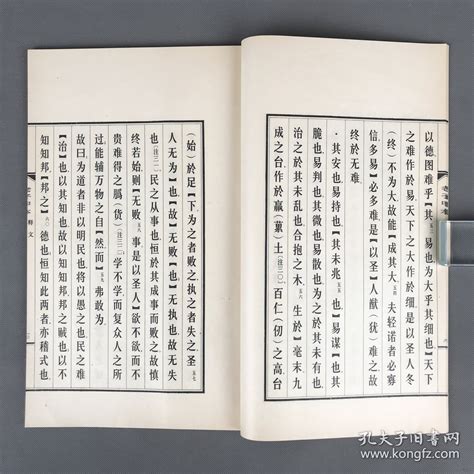 以德图难乎【其五三易也为大乎其细也】天下
之难作於易天下之大作於细是以圣人冬
(终)不为大故能【成其大五四夫轻诺者必寡
信多易】必多难是以圣】人猷(犹)难之故
终於无难
·其安也易持也【其未兆五五也】易谋【也其
脆也易判也其微也易散也为之於其未有也
治之於其未乱也合抱之木五六生於】毫末九
成之台作於羸(蔂)土(注三〇)百仁(仞)之高台
(始)於足【下为之者败之执之者失之圣五七
人无为】也【故】无败【也】无执也故无失
也(注三一)民之从事也恒於其成事而败之故慎
终若始则【无败五八事是以圣人】欲不欲而不
贵难得之䞈(货)(注三二)学不学而复众人之所
过能辅万物之自【然而】五九弗敢为
故曰为道者非以明民也将以愚之也民之难
【治】也以其知也故以知知邦邦之贼也以不
知知邦【邦之】六〇德也恒知此两者亦稽式也
释文
孔夫子旧书网
www.kongfz.com